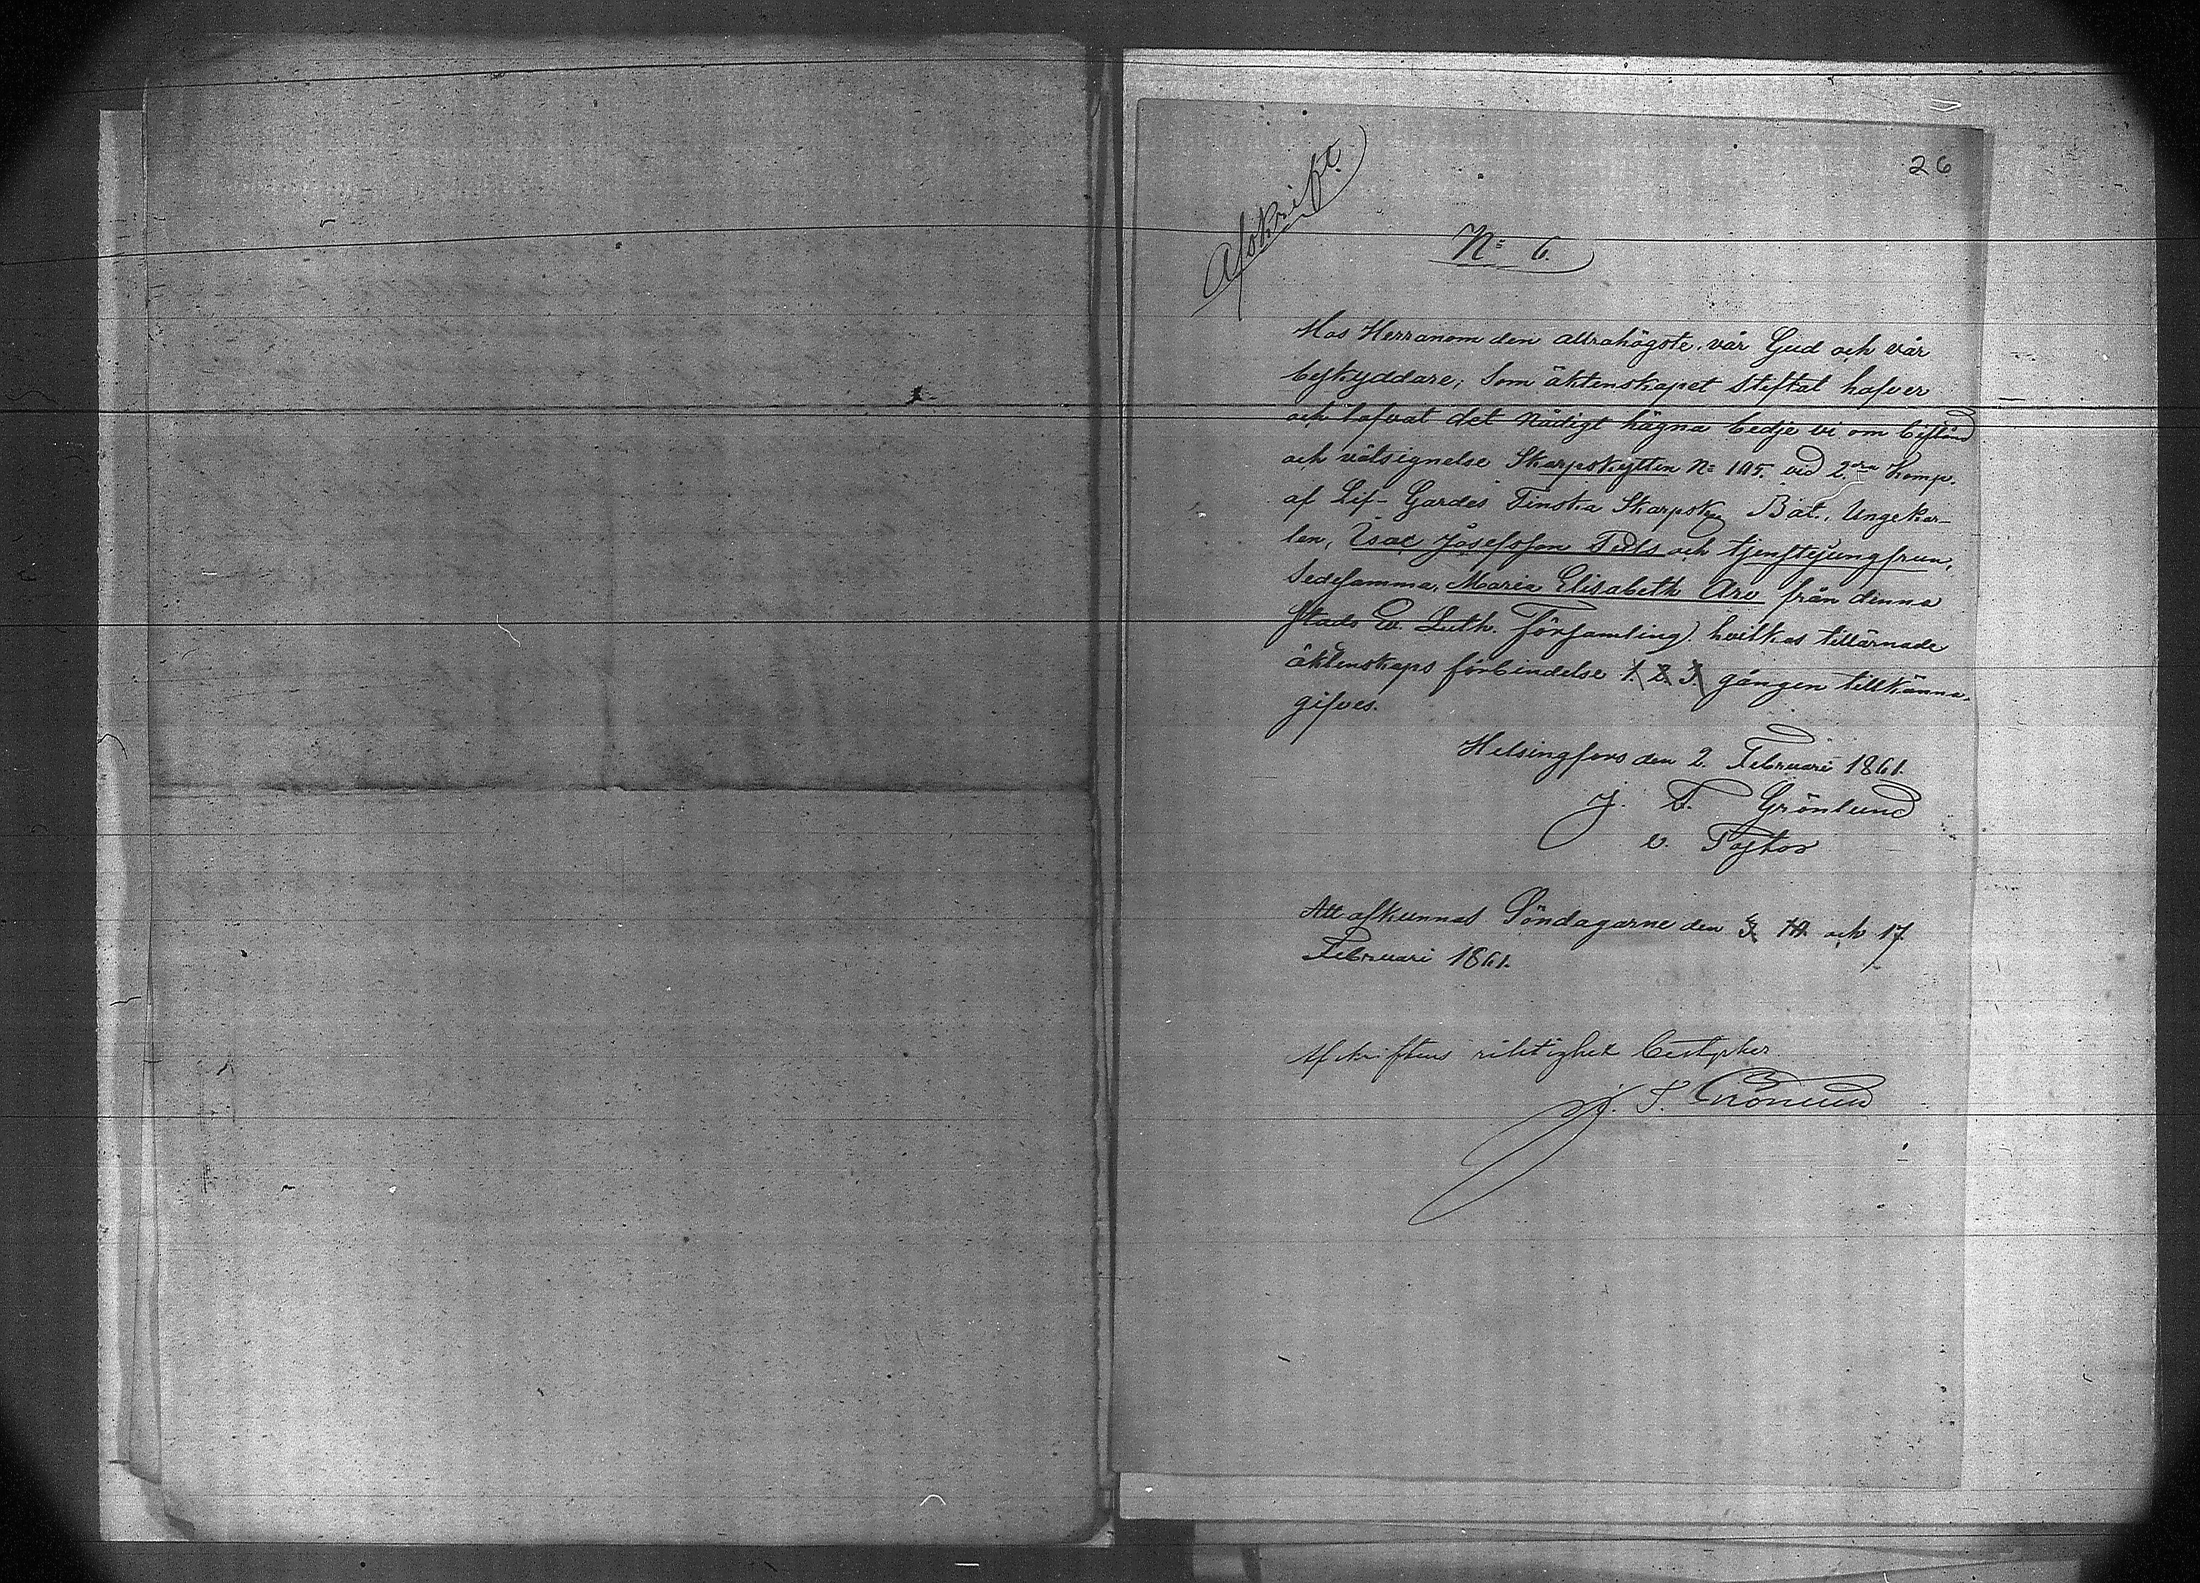 26
Afskrift.
N: 6.
Hos Herranom den allrahögste, vår Gud och vår
beskyddare, Som äktenskapet stiftat hafver
och lofvat det nådigt hägna bedje vi om bistånd
och välsignelse Skarpskytten N: 105. vid 2:dra Komp.
af Lif-Gardes Finska Skarpsky Bat., Ungekar-
len, Isac Josefsson och tjensteyungfrun,
Sedesamma, Maria Elisabeth från denna
stads Ev. Luth. Församling, hvilkas tillärnade
äktenskaps förbindelse 1. 2. 3. gången tillkänna-
gifves.
Helsingfors den 2. Februari 1861.
J. F. Grönlund
v. Pastor
Att afkunnas Söndagarne den 3. 10. och 17.
Februari 1861.
Afskriftens riktighet bestyrker
Grönlund